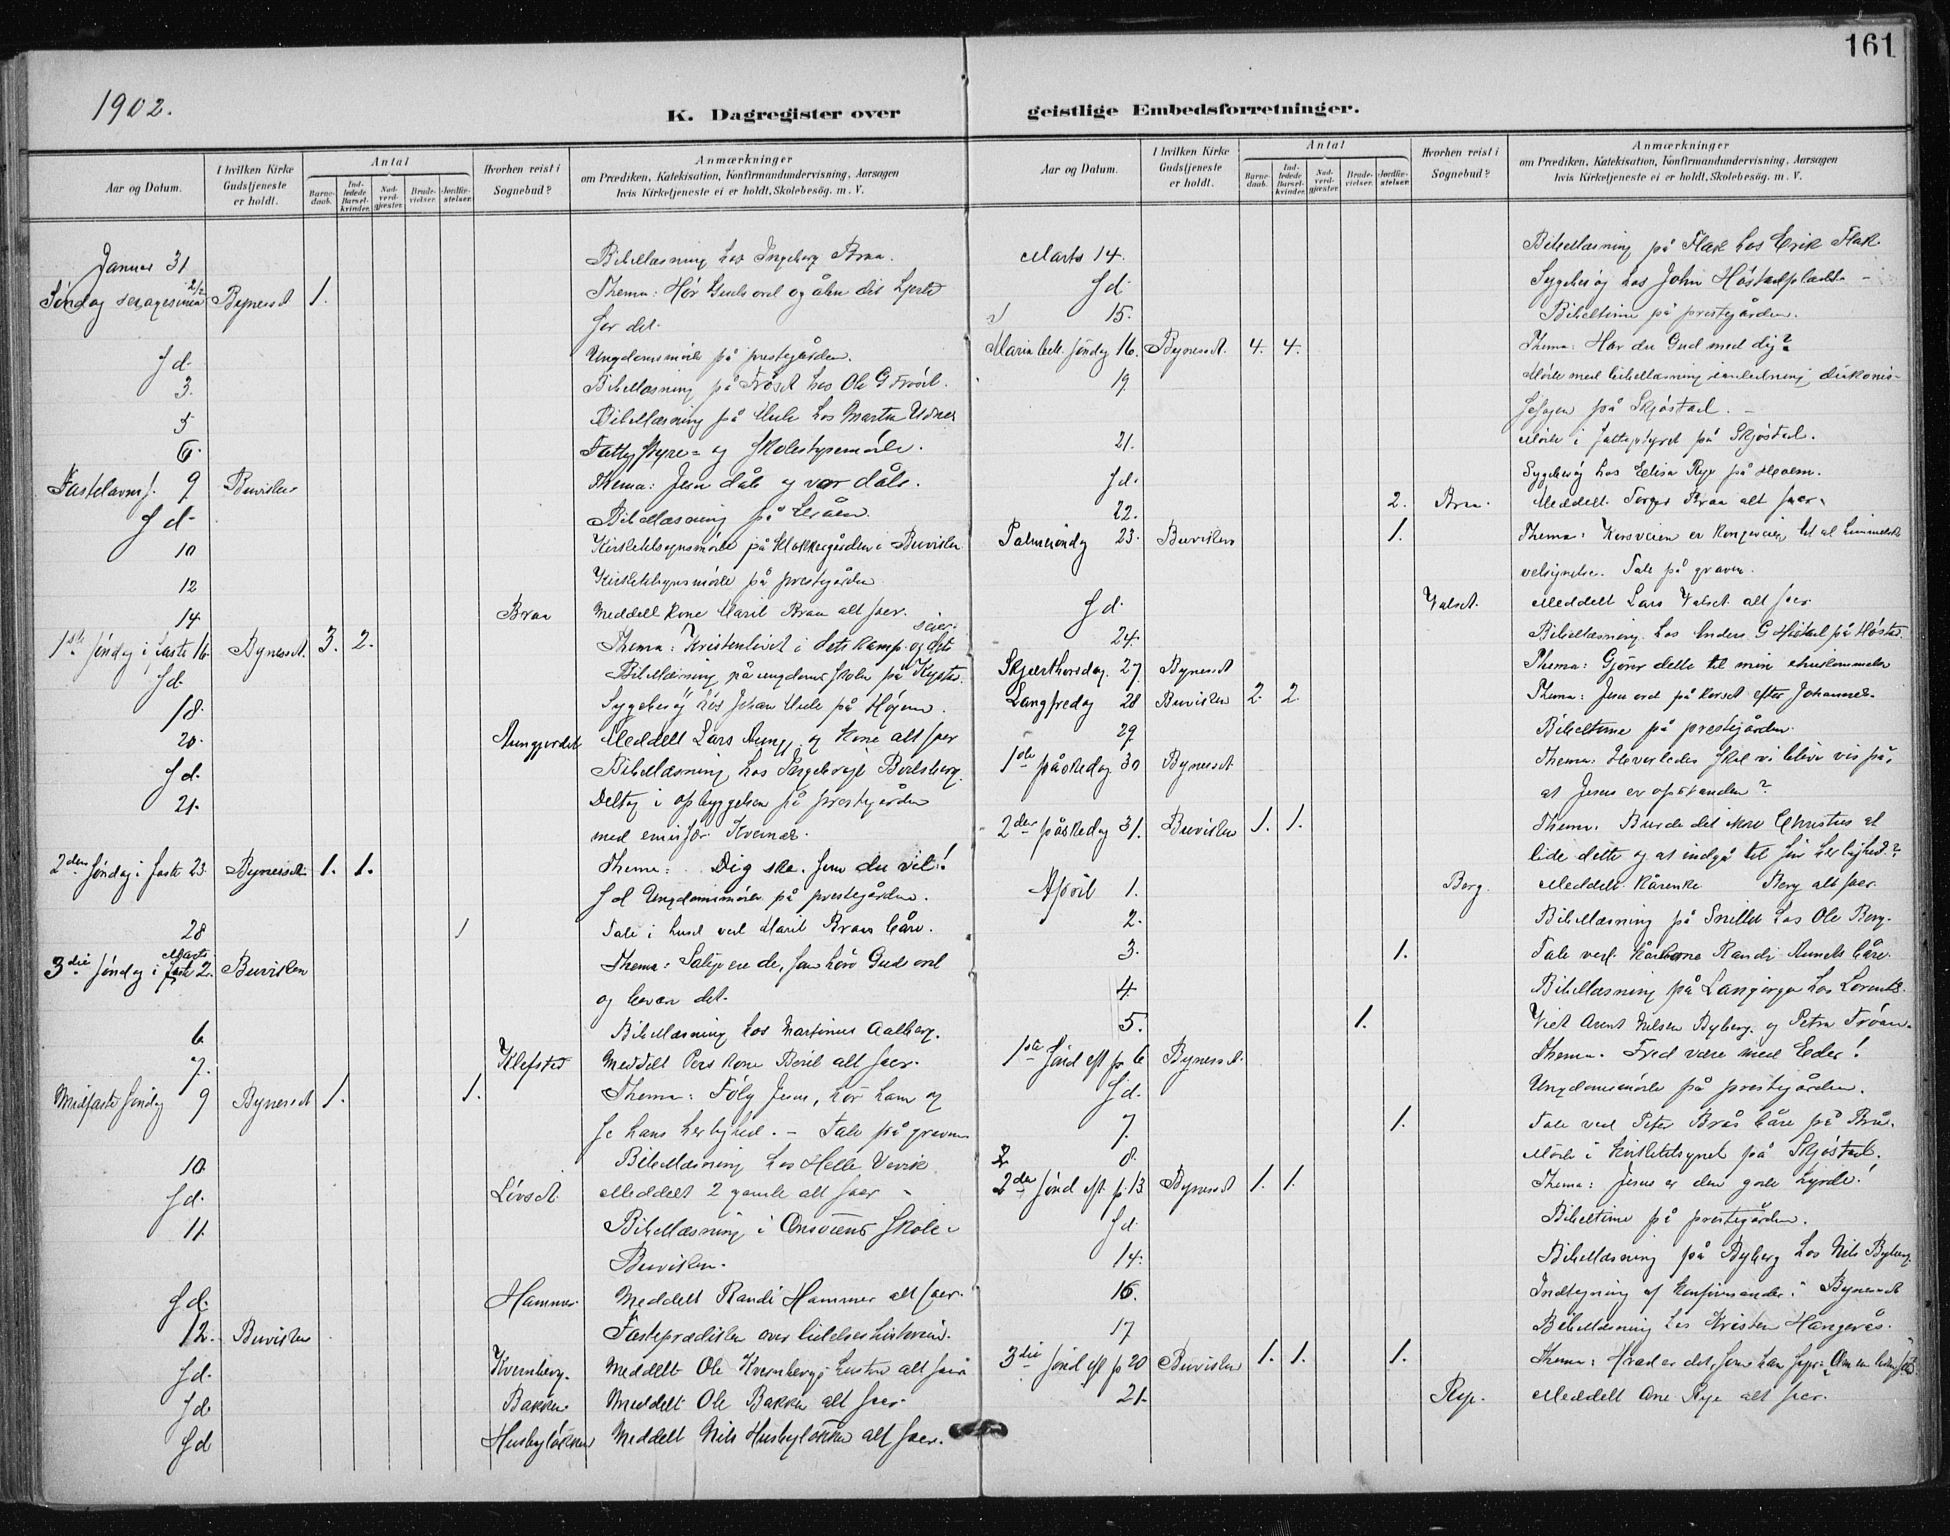 161
1902.
K. Dagregister over geistlige Embedsforretninger.
Aar og Datum. | I hvilken Kirke Gudstjeneste er holdt. | Antal | Barnedaab. | Indledede Barselkvinder. | Nadverdgjæster. | Brudevielser. | Jordfæstelser. | Hvorhen reist i Sognebud? | Anmærkninger om Prædiken, Katekisation, Konfirmandundervisning, Aarsagen hvis Kirketjeneste ei er holdt, Skolebesøg, m. V.
Januar 31 Bibellæsning hos Ingeborg Braa.
Søndag sexagesima 2/2 Bynesset 1. Thema: Hør Guds ord og åbn dit hjerte
for det.
S d. Ungdomsmøde på prestegården.
3. Bibellæsning på Frøset hos Ole G Frøset.
5 Bibellæsning på Mule hos Martin
6. Fattigstyre- og Skolestyremøde.
Fastelavns s. 9 Buviken Thema: Jesu dåb og vor dåb.
S d. Bibellæsning på
10 Kirketilsynsmøde på Klokkergården i Buviken
12 Kirketilsynsmøde på prestegården
14 Braa Meddelt kone Marit Braa alt sacr.
1ste søndag i faste 16. Bynesset. 3. 2. Thema: Kristenlivet i dets kamp og dets seier.
S d. Bibellæsning på ungdomsskolen på
18. Sygebesøg hos Johan Mule på Høyem.
20. Meddelt Lars og kone alt sacr
S d. Bibellæsning hos
21. Deltog i opbyggelsen på prestegården
med emissær Kvernø.
2den søndag i faste 23. Bynesset. 1. 1. Thema: Dig ske, som du vil!
S d Ungdomsmøde på prestegården.
28 1 Tale i huset ved Marit Braas båre.
3die søndag i faste Marts 2. Buviken Thema: Salige ere de, som høre Guds ord
og bevare det.
6 Bibellæsning hos Martinus Aalberg.
7. Klefsta Meddelt Pers kone Beret alt sacr.
Midfaste søndag 9 Bynesset 1. 1. Thema: Følg Jesus, hør ham og
se hans herlighed. - Tale på graven
10. Bibellæsning hos Helle
S d. Løvset Meddelt 2 gamle alt sacr
11. Bibellæsning i Onsøiens Skole i
Buviken.
S d. Hammer Meddelt Randi Hammer alt sacr.
12. Buviken Fasteprædiken over lidelseshistorien.
S d. Kvernberg. Meddelt Ole Kvernbergs hustru alt sacr
S d Bakken Meddelt Ole Bakken alt sacr.
S d Husbyløkken Meddelt Nils Husbyløkken alt sacr.
Aar og Datum. | I hvilken Kirke Gudstjeneste er holdt. | Antal | Barnedaab. | Indledede Barselkvinder. | Nadverdgjæster. | Brudevielser. | Jordfæstelser. | Hvorhen reist i Sognebud? | Anmærkninger om Prædiken, Katekisation, Konfirmandundervisning, Aarsagen hvis Kirketjeneste ei er holdt, Skolebesøg, m. V.
Marts 14. Bibellæsning på Flak hos Erik Flak
S d. Sygebesøg hos John Høstadpladsen
15. Bibeltime på prestegården.
Maria beb. søndag 16. Bynesset. 4. 4. Thema: Har du Gud med dig?
19 Møde med bibellæsning i anledning diakonis-
sesagen på Skjøstad.
21. Møde i fattigstyret på Skjøstad.
S d. Sygebesøg hos Elisa Rye på Holm.
22. 2. Braa. Meddelt Torger Braa alt sacr.
Palmesøndag 23. Buviken 1. Thema: Korsveien er kongevein til al himmelsk
velsignelse. Tale på graven.
S d. Valset. Meddelt Lars Valset alt sacr
24. Bibellæsning hos Anders G Høstad på Høstad.
Skjærthorsdag. 27. Bynesset Thema: Gjører dette til min ihukommelse
Langfredag 28 Buviken 2. 2. Thema: Jesu ord på korset efter Johannes.
29. Bibeltime på prestegården.
1ste påskedag 30 Bynesset Thema: Hvorledes skal vi blive vis på,
at Jesus er opstanden?
2den påskedag 31. Buviken 1. 1. Thema: Burde det ikke Christus at
lide dette og at indgå til sin herlighed?
April 1. Berg. Meddelt Kårenke Berg alt sacr.
2. Bibellæsning på Snilld hos Ole Berg.
3. 1. Tale ved kårkone Randi båre.
4. Bibellæsning på Langørgen hos Lorents.
5. 1. Viet Arnt Nilsen Byberg og Petra Frøan.
1ste sønd eft p. 6 Bynesset. Thema. Fred være med Eder!
S d. Ungdomsmøde på prestegården.
7. 1. Tale ved Peter Brås båre på Brå.
8. Møde i Kirketilsynet på Skjøstad.
2den sønd eft. p. 13. Bynesset 1. 1. Thema: Jesus er den gode hyrde!
S d. Bibeltime på prestegården.
14. Bibellæsning på Byberg hos Nils Byberg.
16. Indtegning af konfirmander i Bynesset
17 Bibellæsning hos Kristen Hangerås.
3die sønd eft p 20 Buviken 1. 1. 1. Thema: Hvad er det, som han siger: Om en liden stund
21. Rye. Meddelt Ane Rye alt sacr.